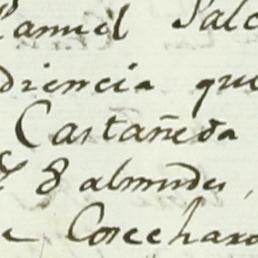 Manuel Salc
diencia que
Castañeda
8 almudes,
e Cosecharo